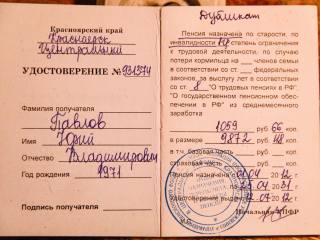 Красноярский край
Красноярск
Центральный
УДОСТОВЕРЕНИЕ №931374
Фамилия получателя
Павлов
Имя Юрий
Отчество Владимирович
Год рождения 1971
Подпись получателя
Дубликат
Пенсия назначена по старости, по
инвалидности степень ограничения
к трудовой деятельности, по случаю
потери кормильца на членов семьи
в соответствии со ст. федеральных
законах, за выслугу лет в соответствии
со ст 8 "О трудовых пенсиях в РФ".
"О государственном пенсионном обес-
печении в РФ" из среднемесячного
заработка
1059 руб 66 коп.
в размере 9872 руб 48 коп.
в т.ч. базовая часть руб. коп.
страховая часть руб. коп.
Пенсия назначена с 01.04 2012 г.
по 25.04 2031
Удостоверение выдано 12.04 2012
Начальник УПФР